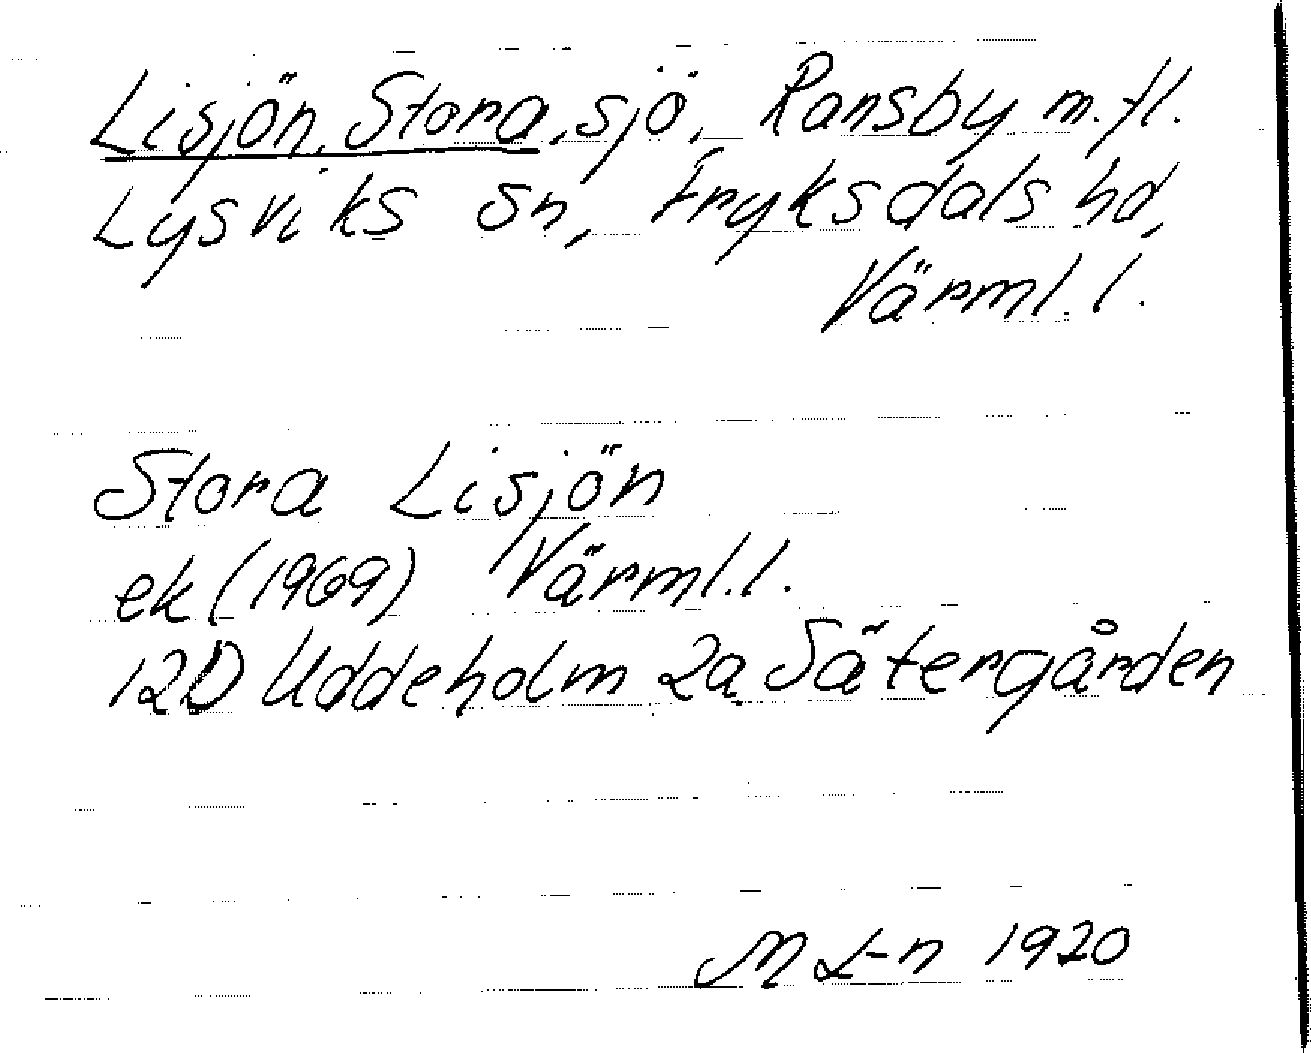 Lisjön, Stora, sjö, Ransby m.fl.
Lysviks sn, Fryksdals hd,
Värml. l.
Stora Lisjön
ek (1969) Värml. l.
12D Uddeholm 2a Sätergården
M L-n 1920